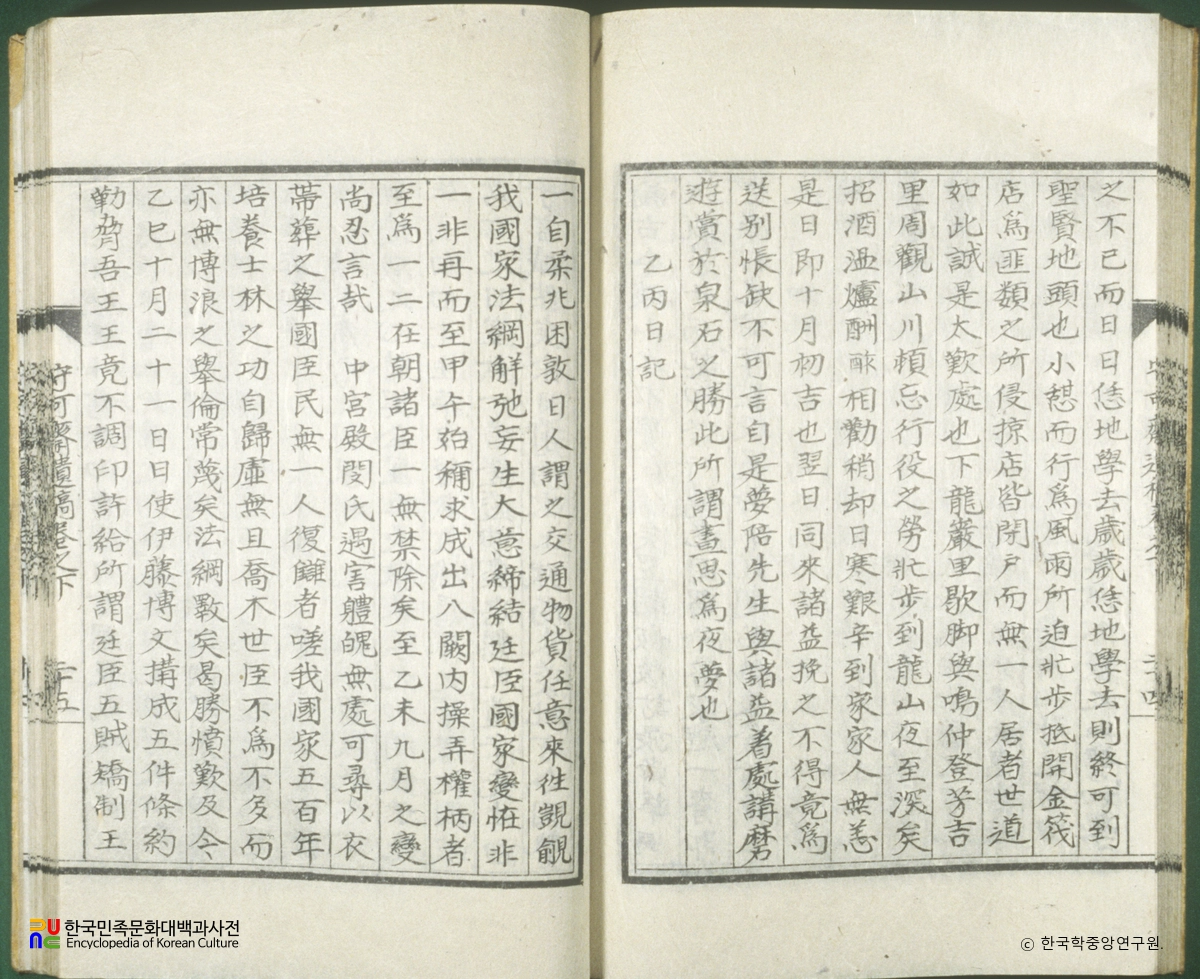 之不已而日日恁地學去歲歲恁地學去則終可到
聖賢地頭也小憩而行爲風雨所迫壯步抵開金筏
店爲匪類之所侵掠店皆閉戶而無一人居者世道
如此誠是太歎處也下龍巖里歇脚與鳴仲登芳吉
里周觀山川頓忘行役之勞壯步到龍山夜至深矣
招酒溫爐酬酢相勸稍却日寒艱辛到家家人無恙
是日即十月初吉也翌日同來諸益挽之不得竟爲
送別悵缺不可言自是夢陪先生與諸益着處講磨
遊賞於泉石之勝此所謂晝思爲夜夢也
乙丙日記
一自柔兆困敦日人謂之交通物貨任意來往覬覦
我國家法綱解弛妄生大意締結廷臣國家變恠非
一非再而至甲午始稱求成出入闕內操弄權柄者
至爲一二在朝諸臣一無禁除矣至乙未九月之變
尚忍言哉 中宮殿閔氏遇害體魄無處可尋以衣
帶葬之擧國臣民無一人復讎者嗟我國家五百年
培養士林之功自歸虛無且喬木世臣不爲不多而
亦無博浪之擧倫常蔑矣法綱斁矣曷勝憤歎及今
乙巳十月二十一日日使伊藤博文搆成五件條約
勒脅吾王王竟不調印許給所謂廷臣五賊矯制王
守可齋遺稿卷之下 二十五
한국민족문화대백과사전
Encyclopedia of Korean Culture
© 한국학중앙연구원.